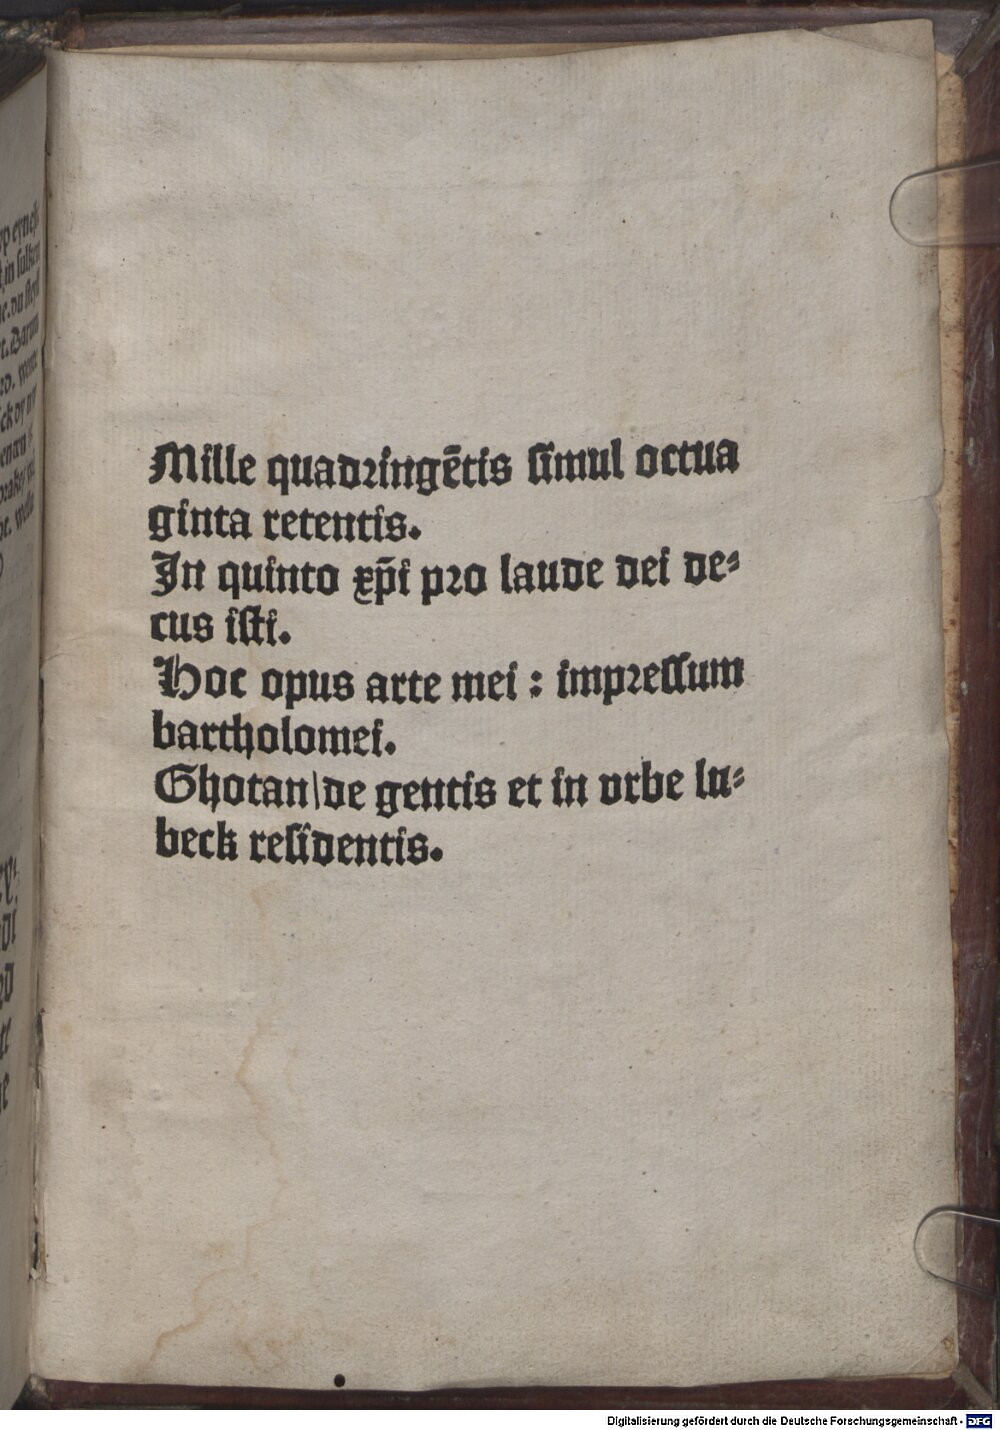 Mille quadringētis simul octua
ginta retentis.
In quinto xp̄i pro laude dei de⸗
cus isti.
Hoc opus arte mei : impressum
bartholomei.
Ghotan/de gentis et in vrbe lu⸗
beck residentis.
Digitalisierung gefördert durch die Deutsche Forschungsgemeinschaft - DFG